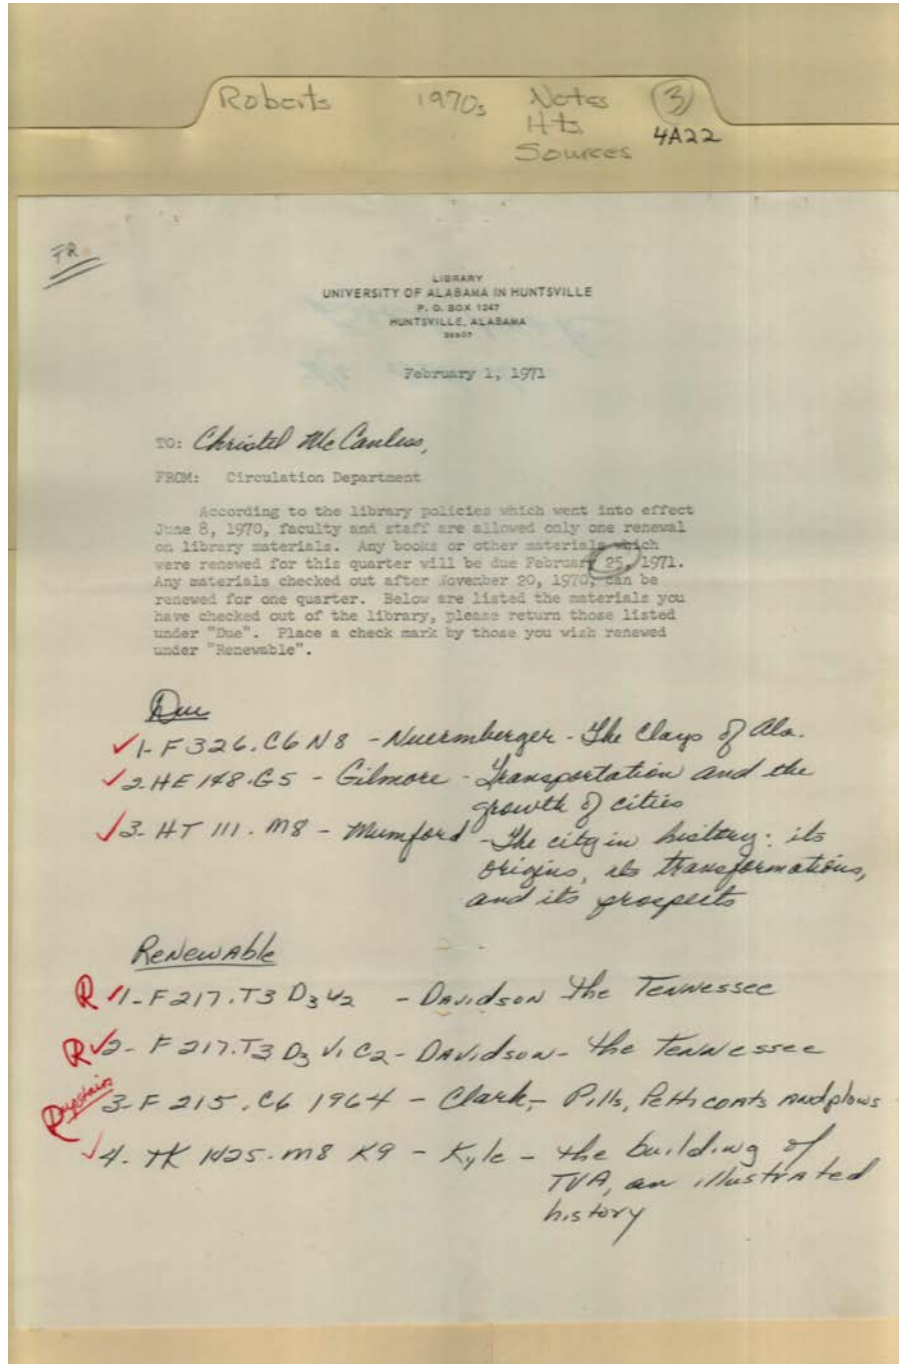 Roberts 1970s Notes 3
Hts 4A22
Sources
FR
LIBRARY
UNIVERSITY OF ALABAMA IN HUNTSVILLE
P. O. BOX 1247
HUNTSVILLE, ALABAMA
February 1, 1971
TO: Christel McCanless,
FROM: Circulation Department
According to the library policies which went into effect
June 8, 1970, faculty and staff are allowed only one renewal
on library materials. Any books or other materials which
were renewed for this quarter will be due February 25, 1971.
Any materials checked out after November 20, 1970, can be
renewed for one quarter. Below are listed the materials you
have checked out of the library, please return those listed
under "Due". Place a check mark by those you wish renewed
under "Renewable".
Due
✓ 1- F 326.C6 N8 - Nuermberger - The Clays of Ala.
✓ 2. HE 148.G5 - Gilmore - Transportation and the
growth of cities
✓ 3- HT 111. M8 - Mumford - The city in history: its
origins, its transformations,
and its prospects
Renewable
R ✓ 1- F 217.T3 D3 V2 - Davidson the Tennessee
R ✓ 2- F 217.T3 D3 V1 C2 - Davidson - the Tennessee
R upstairs 3- F 215.C6 1964 - Clark, - Pills, Petticoats and plows
✓ 4. TK 1425. M8 K9 - Kyle - the building of
TVA, an illustrated
history